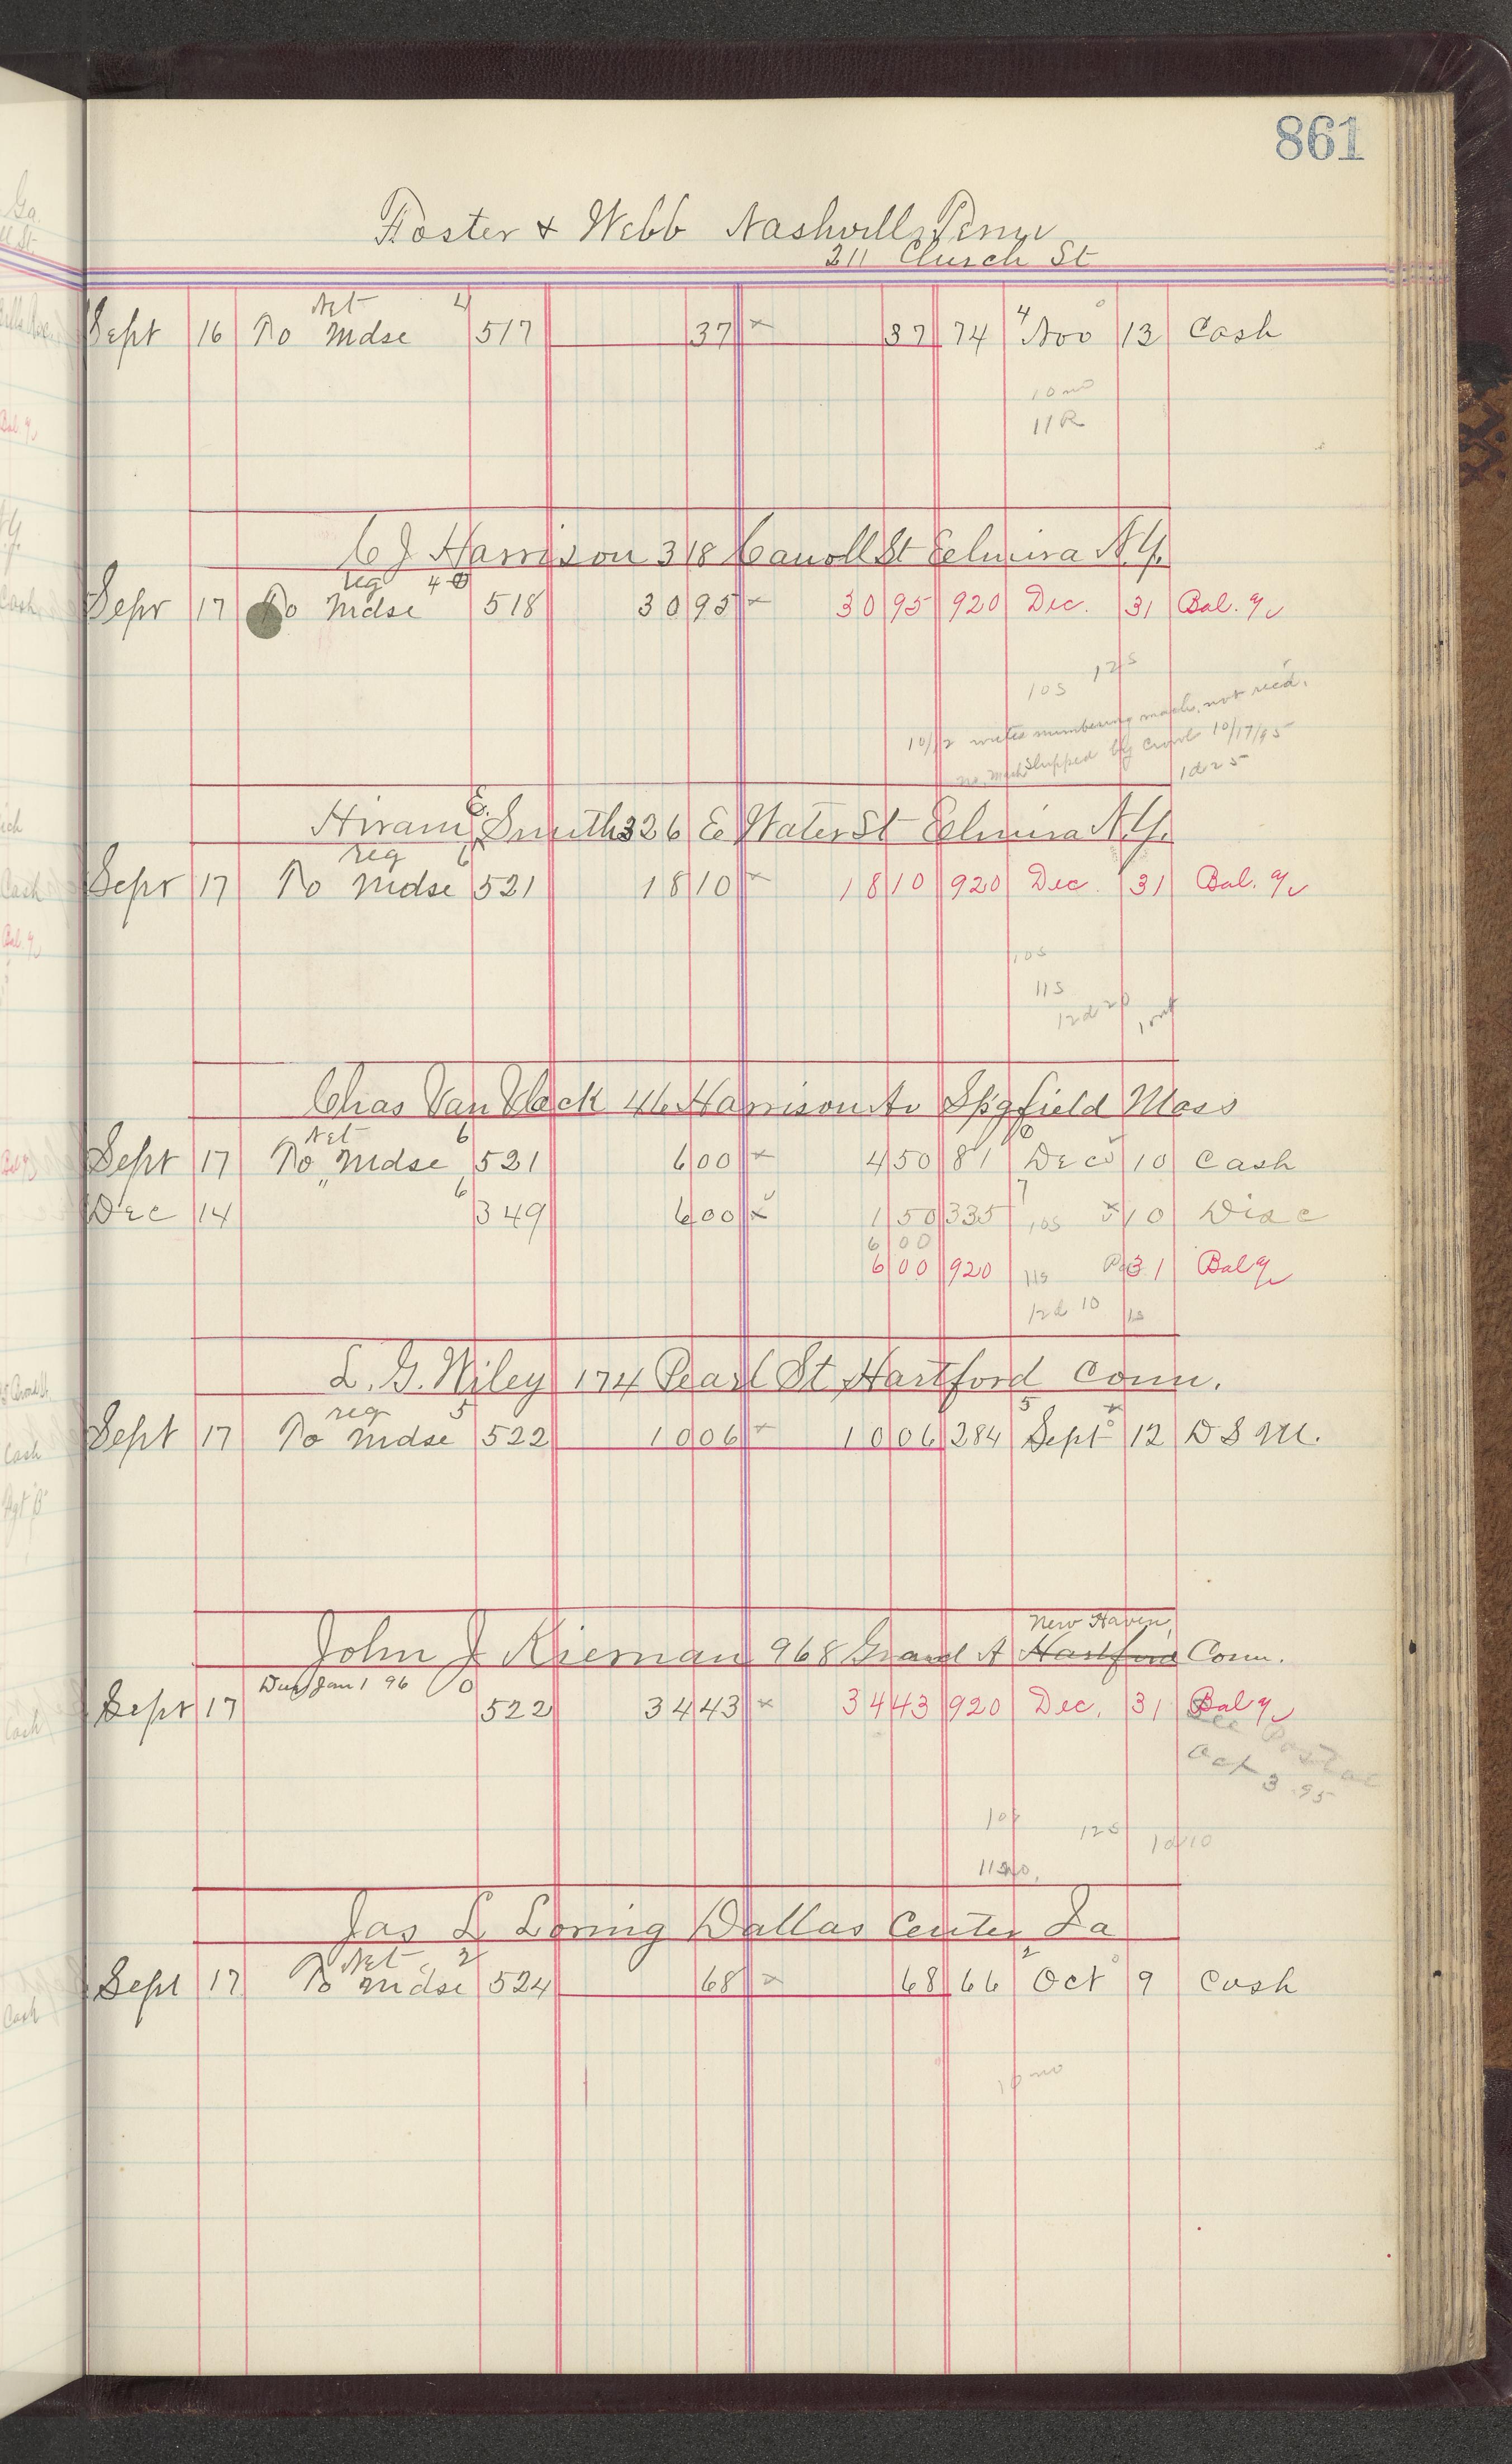 861
Foster & Webb Nashvill, Tenn
211 Church St
Net 4
Sept 16 To Mdse 517 37 x 37 74 4 Nov 13 Cash
10 no
11 R
C J Harrison 318 Caroll St Elmira N.Y.
reg 4
Sepr 17 To Mdse 518 30 95 x 30 95 920 Dec. 31 Bal. a/c
10s 12s
10/12 writes numbering mach. not rec'd.
no. Mach Shipped by Crowl 10/17/95
1d25
Hiram E. Smith 326 E Water St Elmira N.Y.
reg 6
Sepr 17 To Mdse 521 18 10 x 18 10 920 Dec. 31 Bal. a/c
10s
11s
12d20
Chas Van Vlack 46 Harrison Av Spgfield Mass
Net 6
Sept 17 To Mdse 521 6 00 x 4 50 81 Dec 10 Cash
Dec 14 " 6 349 6 00 x 1 50 335 7 10s 10 Disc
6 00
6 00 920 11s 31 Bal a/c
12d 10 1s
L. G. Wiley 174 Pearl St Hartford Conn.
reg 5
Sept 17 To Mdse 522 10 06 x 10 06 284 5 Sept 12 D S M.
New Haven,
John J Kiernan 968 Grand A Hartford Conn.
Due Jan 1 96 0
Sepr 17 522 34 43 x 34 43 920 Dec. 31 Bal a/c
See Postal
Oct 3 95
10s 12s 1d10
11 no.
Jas L Loring Dallas Center Ia
Net 2
Sept 17 To Mdse 524 68 x 68 66 2 Oct 9 Cash
10 no